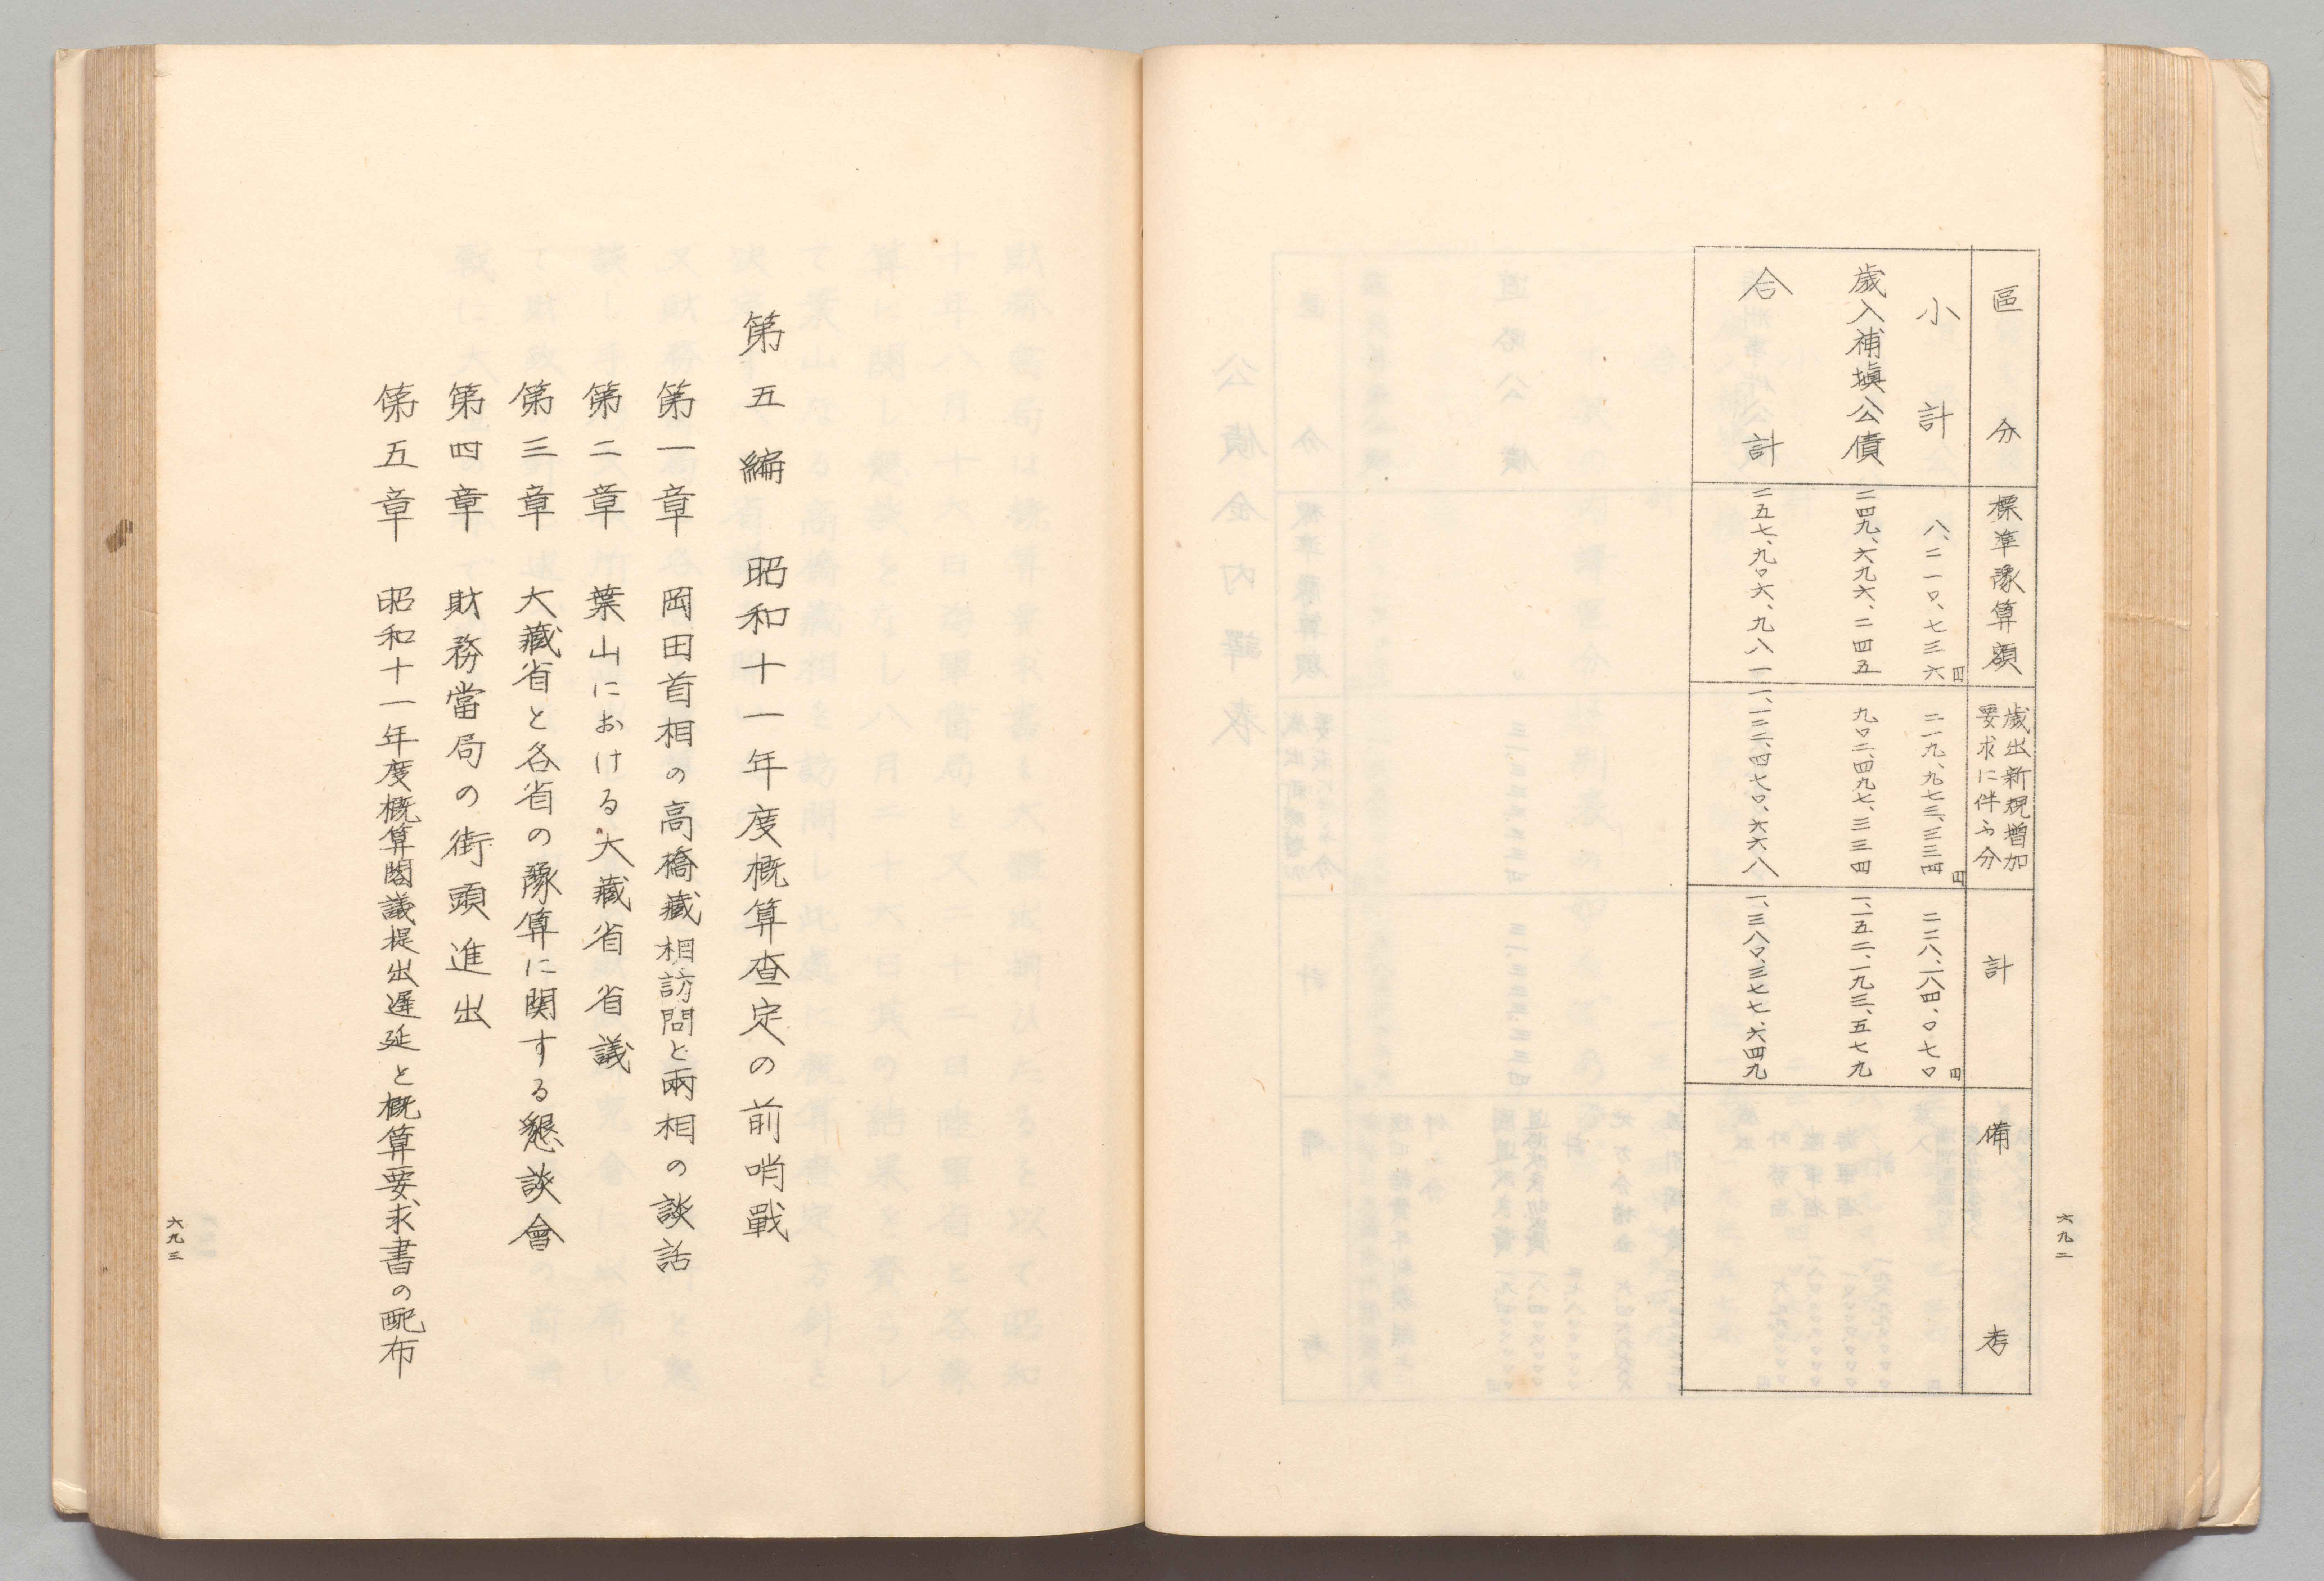 區分 標準豫算額 歲出新規增加要求に伴ふ分 計 備考
小計 八、二一〇、七三六円 二一九、九七三、三三四円 二二八、一八四、〇七〇円
歲入補塡公債 二四九、六九六、二四五 九〇二、四九七、三三四 一、一五二、一九三、五七九
合計 二五七、九〇六、九八一 一、一二二、四七〇、六六八 一、三八〇、三七七、六四九
六九二
第五編 昭和十一年度概算查定の前哨戰
第一章 岡田首相の高橋藏相訪問と兩相の談話
第二章 葉山における大藏省省議
第三章 大藏省と各省の豫算に関する懇談會
第四章 財務當局の街頭進出
第五章 昭和十一年度概算閣議提出遲延と概算要求書の配布
六九三